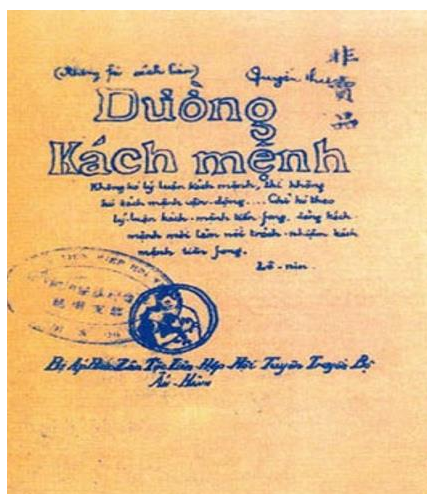 非賣品
(Không fải sách bán)
Quyển thu
Dường
Kách mệnh
Không kó lý luận kách mệnh, thì không
kó kách mệnh vận-động.... Chỉ kó theo
lý luận kách-mệnh tiền fong, đảng kách
mệnh mới làm nổi trách-nhiệm kách
mệnh tiền fong.
Lê-nin.
Bị Áp Bức Zân Tộc Liên Hợp Hội Tuyên Truyền Bộ
Ấn-Hành